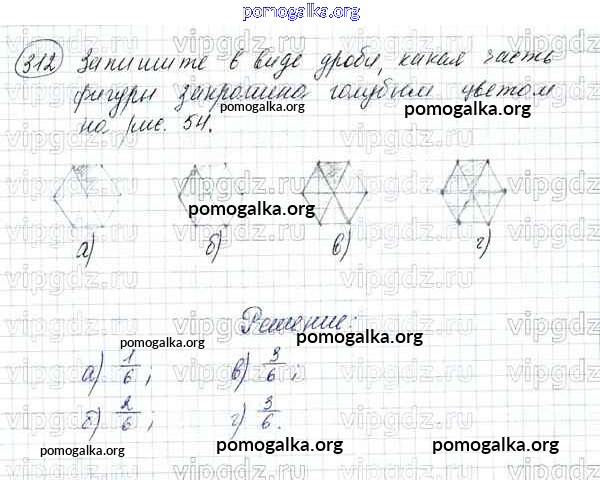 pomogalka.org
312 Запишите в виде дроби, какая часть
фигуры закрашена голубым цветом
pomogalka.org pomogalka.org
на рис. 54.
pomogalka.org
а) б) в) г)
Решение:
pomogalka.org pomogalka.org
а) 1/6; в) 3/6;
б) 2/6; г) 3/6.
pomogalka.org pomogalka.org pomogalka.org
vipgdz.ru vipgdz.ru vipgdz.ru